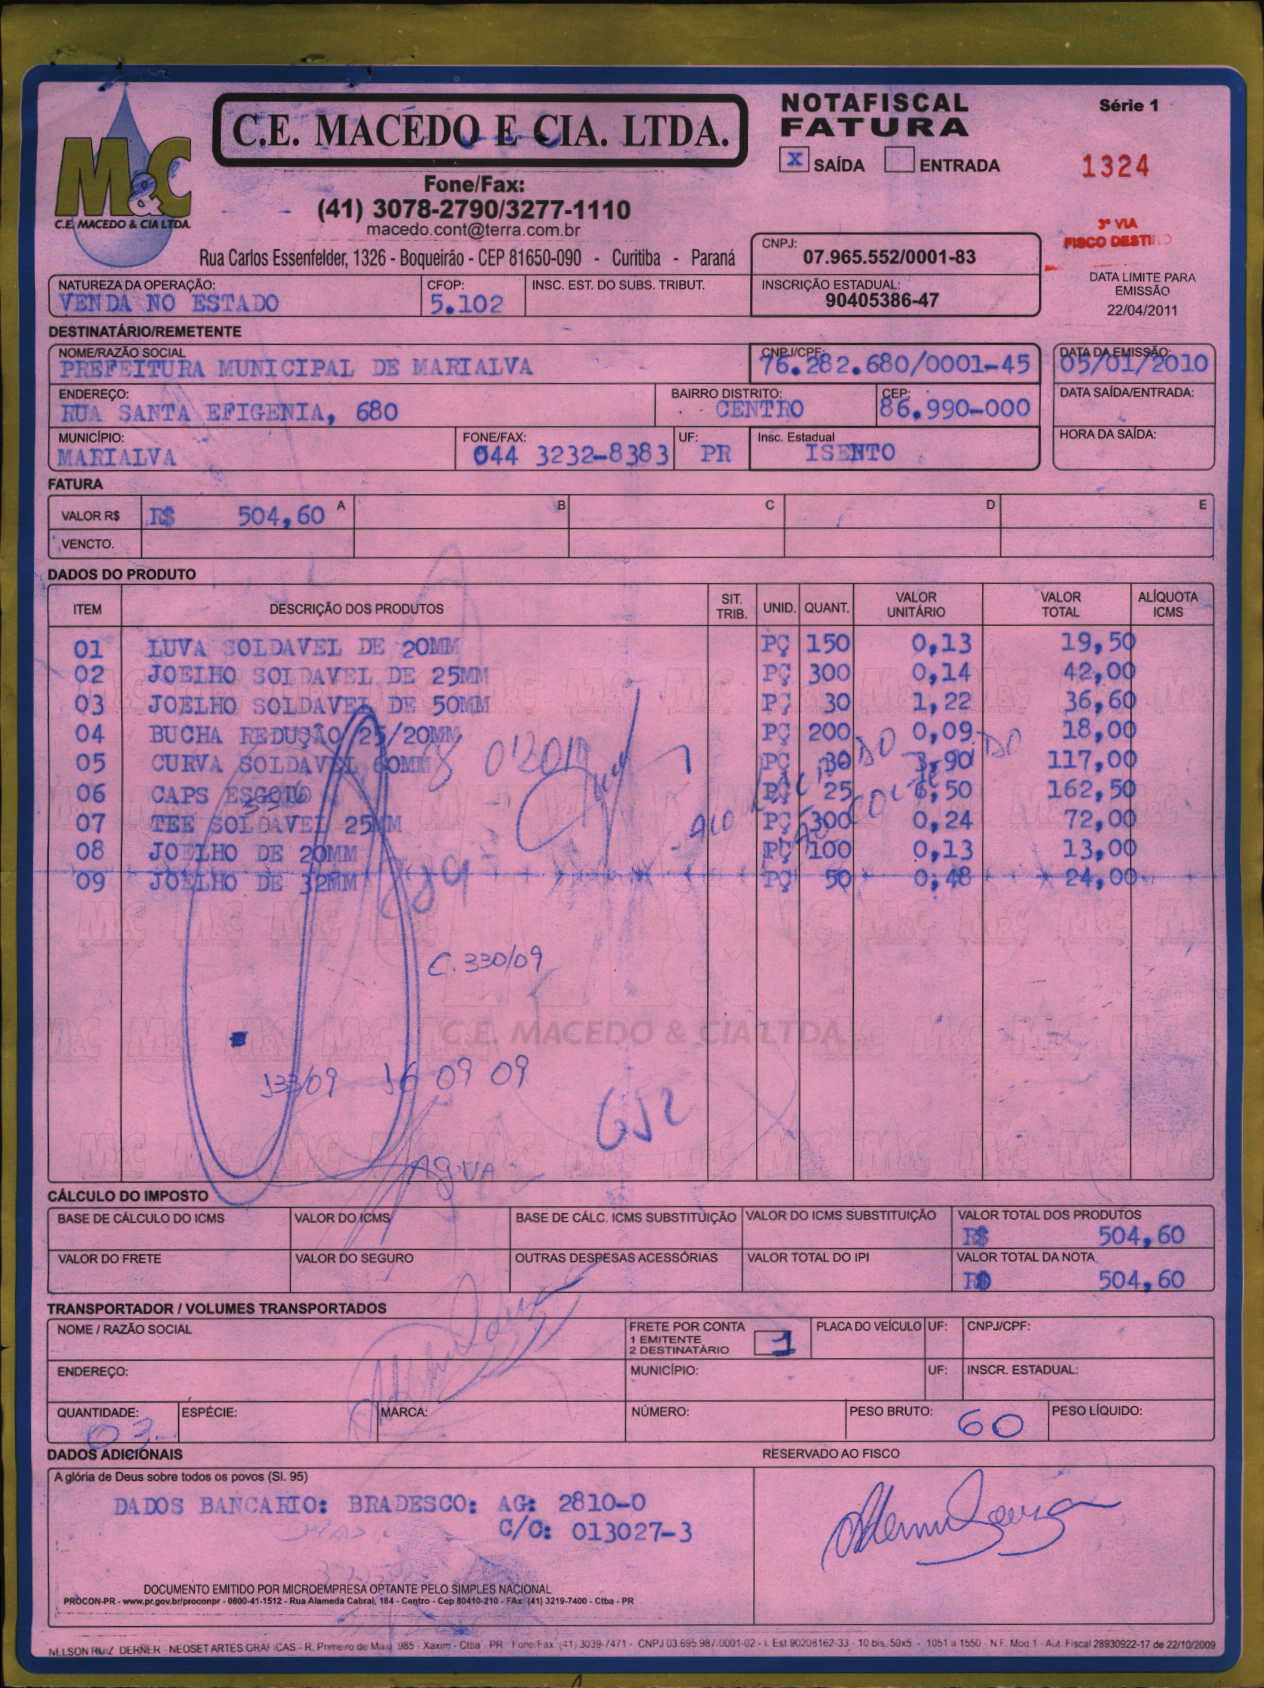 C.E. MACEDO E CIA. LTDA.
M&C
C.E. MACEDO & CIA LTDA.
Fone/Fax:
(41) 3078-2790/3277-1110
macedo.cont@terra.com.br
Rua Carlos Essenfelder, 1326 - Boqueirão - CEP 81650-090 - Curitiba - Paraná
NOTAFISCAL
FATURA
X SAÍDA ENTRADA
Série 1
1324
3ª VIA
FISCO DESTINO
CNPJ:
07.965.552/0001-83
INSCRIÇÃO ESTADUAL:
90405386-47
DATA LIMITE PARA
EMISSÃO
22/04/2011
NATUREZA DA OPERAÇÃO: CFOP: INSC. EST. DO SUBS. TRIBUT.
VENDA NO ESTADO 5.102
DESTINATÁRIO/REMETENTE
NOME/RAZÃO SOCIAL CNPJ/CPF: DATA DA EMISSÃO:
PREFEITURA MUNICIPAL DE MARIALVA 76.282.680/0001-45 05/01/2010
ENDEREÇO: BAIRRO DISTRITO: CEP: DATA SAÍDA/ENTRADA:
RUA SANTA EFIGENIA, 680 CENTRO 86.990-000
MUNICÍPIO: FONE/FAX: UF: Insc. Estadual HORA DA SAÍDA:
MARIALVA 044 3232-8383 PR ISENTO
FATURA
VALOR R$ R$ 504,60 A B C D E
VENCTO.
DADOS DO PRODUTO
ITEM DESCRIÇÃO DOS PRODUTOS SIT. TRIB. UNID. QUANT. VALOR UNITÁRIO VALOR TOTAL ALÍQUOTA ICMS
01 LUVA SOLDAVEL DE 20MM PÇ 150 0,13 19,50
02 JOELHO SOLDAVEL DE 25MM PÇ 300 0,14 42,00
03 JOELHO SOLDAVEL DE 50MM PÇ 30 1,22 36,60
04 BUCHA REDUÇÃO 25/20MM PÇ 200 0,09 18,00
05 CURVA SOLDAVEL 60MM PÇ 30 3,90 117,00
06 CAPS ESGOTO PÇ 25 6,50 162,50
07 TEE SOLDAVEL 25MM PÇ 300 0,24 72,00
08 JOELHO DE 20MM PÇ 100 0,13 13,00
09 JOELHO DE 32MM PÇ 50 0,48 24,00
C. 330/09
C.E. MACEDO & CIA LTDA.
133/09 16 09 09
652
AGUA
CÁLCULO DO IMPOSTO
BASE DE CÁLCULO DO ICMS VALOR DO ICMS BASE DE CÁLC. ICMS SUBSTITUIÇÃO VALOR DO ICMS SUBSTITUIÇÃO VALOR TOTAL DOS PRODUTOS
R$ 504,60
VALOR DO FRETE VALOR DO SEGURO OUTRAS DESPESAS ACESSÓRIAS VALOR TOTAL DO IPI VALOR TOTAL DA NOTA
R$ 504,60
TRANSPORTADOR / VOLUMES TRANSPORTADOS
NOME / RAZÃO SOCIAL FRETE POR CONTA PLACA DO VEÍCULO UF: CNPJ/CPF:
1 EMITENTE
2 DESTINATÁRIO 1
ENDEREÇO: MUNICÍPIO: UF: INSCR. ESTADUAL:
QUANTIDADE: ESPÉCIE: MARCA: NÚMERO: PESO BRUTO: PESO LÍQUIDO:
03 60
DADOS ADICIONAIS RESERVADO AO FISCO
A glória de Deus sobre todos os povos (Sl. 95)
DADOS BANCARIO: BRADESCO: AG: 2810-0
C/C: 013027-3
DOCUMENTO EMITIDO POR MICROEMPRESA OPTANTE PELO SIMPLES NACIONAL
PROCON-PR - www.pr.gov.br/proconpr - 0800-41-1512 - Rua Alameda Cabral, 184 - Centro - Cep 80410-210 - FAx: (41) 3219-7400 - Ctba - PR
NELSON RUIZ DERNER - NEOSET ARTES GRAFICAS - R. Primeiro de Maio, 985 - Xaxim - Ctba - PR - Fone/Fax (41) 3039-7471 - CNPJ 03.695.987/0001-02 - I. Est 90208162-33 - 10 bls. 50x5 - 1051 a 1550 - N.F. Mod 1 - Aut. Fiscal 28930922-17 de 22/10/2009